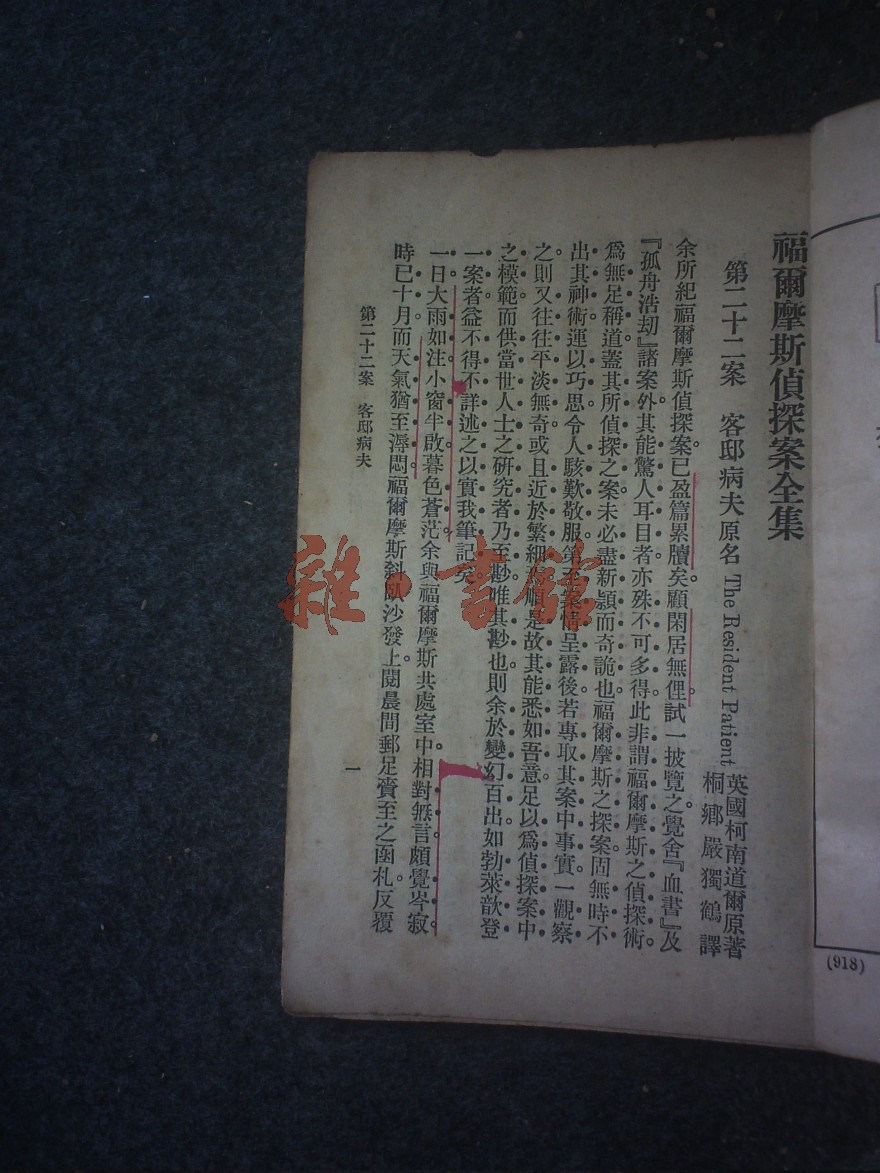 福爾摩斯偵探案全集
第二十二案 客邸病夫 原名 The Resident Patient
英國柯南道爾原著
桐鄉嚴獨鶴譯
余所紀福爾摩斯偵探案。已盈篇累牘矣。顧閑居無俚。試一披覽之。覺舍『血書』及
『孤舟浩劫』諸案外。其能驚人耳目者。亦殊不可多得。此非謂福爾摩斯之偵探術。
爲無足稱道。蓋其所偵探之案。未必盡新穎而奇詭也。福爾摩斯之探案。固無時不
出其神術。運以巧思。令人駭歎敬服。第至案情呈露後。若專取其案中事實。一觀察
之。則又往往平淡無奇。或且近於繁細。順是故其能悉如吾意。足以爲偵探案中
之模範。而供當世人士之研究者。乃至尠。唯其尠也。則余於變幻百出如勃萊歆登
一案者。益不得不詳述之。以實我筆記矣。
一日大雨如注。小窗半啟。暮色蒼茫。余與福爾摩斯共處室中。相對無言。頗覺岑寂。
時已十月。而天氣猶至溽悶。福爾摩斯斜臥沙發上。閱晨間郵足賫至之函札。反覆
第二十二案 客邸病夫
一
(918)
雜·書館